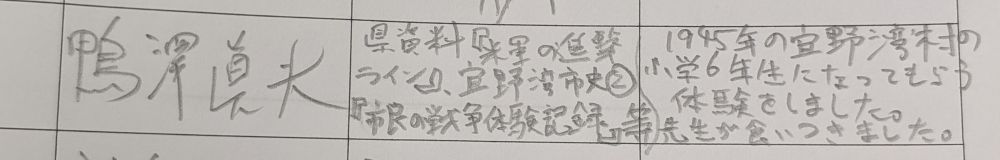 鴨澤眞夫
県資料『米軍の進撃
ライン』、宜野湾市史②
『市民の戦争体験記録』等
1945年の宜野湾村の
小学6年生になってもらう
体験をしました。
先生が食いつきました。